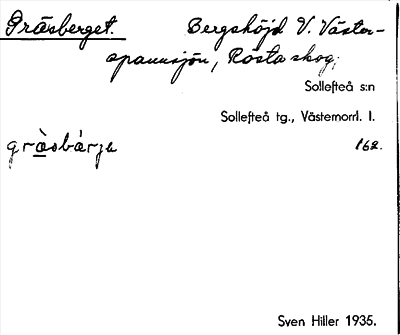 Gräsberget. Bergshöjd V. Väster-
spannsjön, Rösta skog,
Sollefteå s:n
Sollefteå tg., Västernorrl. l.
gräsbárje 162.
Sven Hiller 1935.